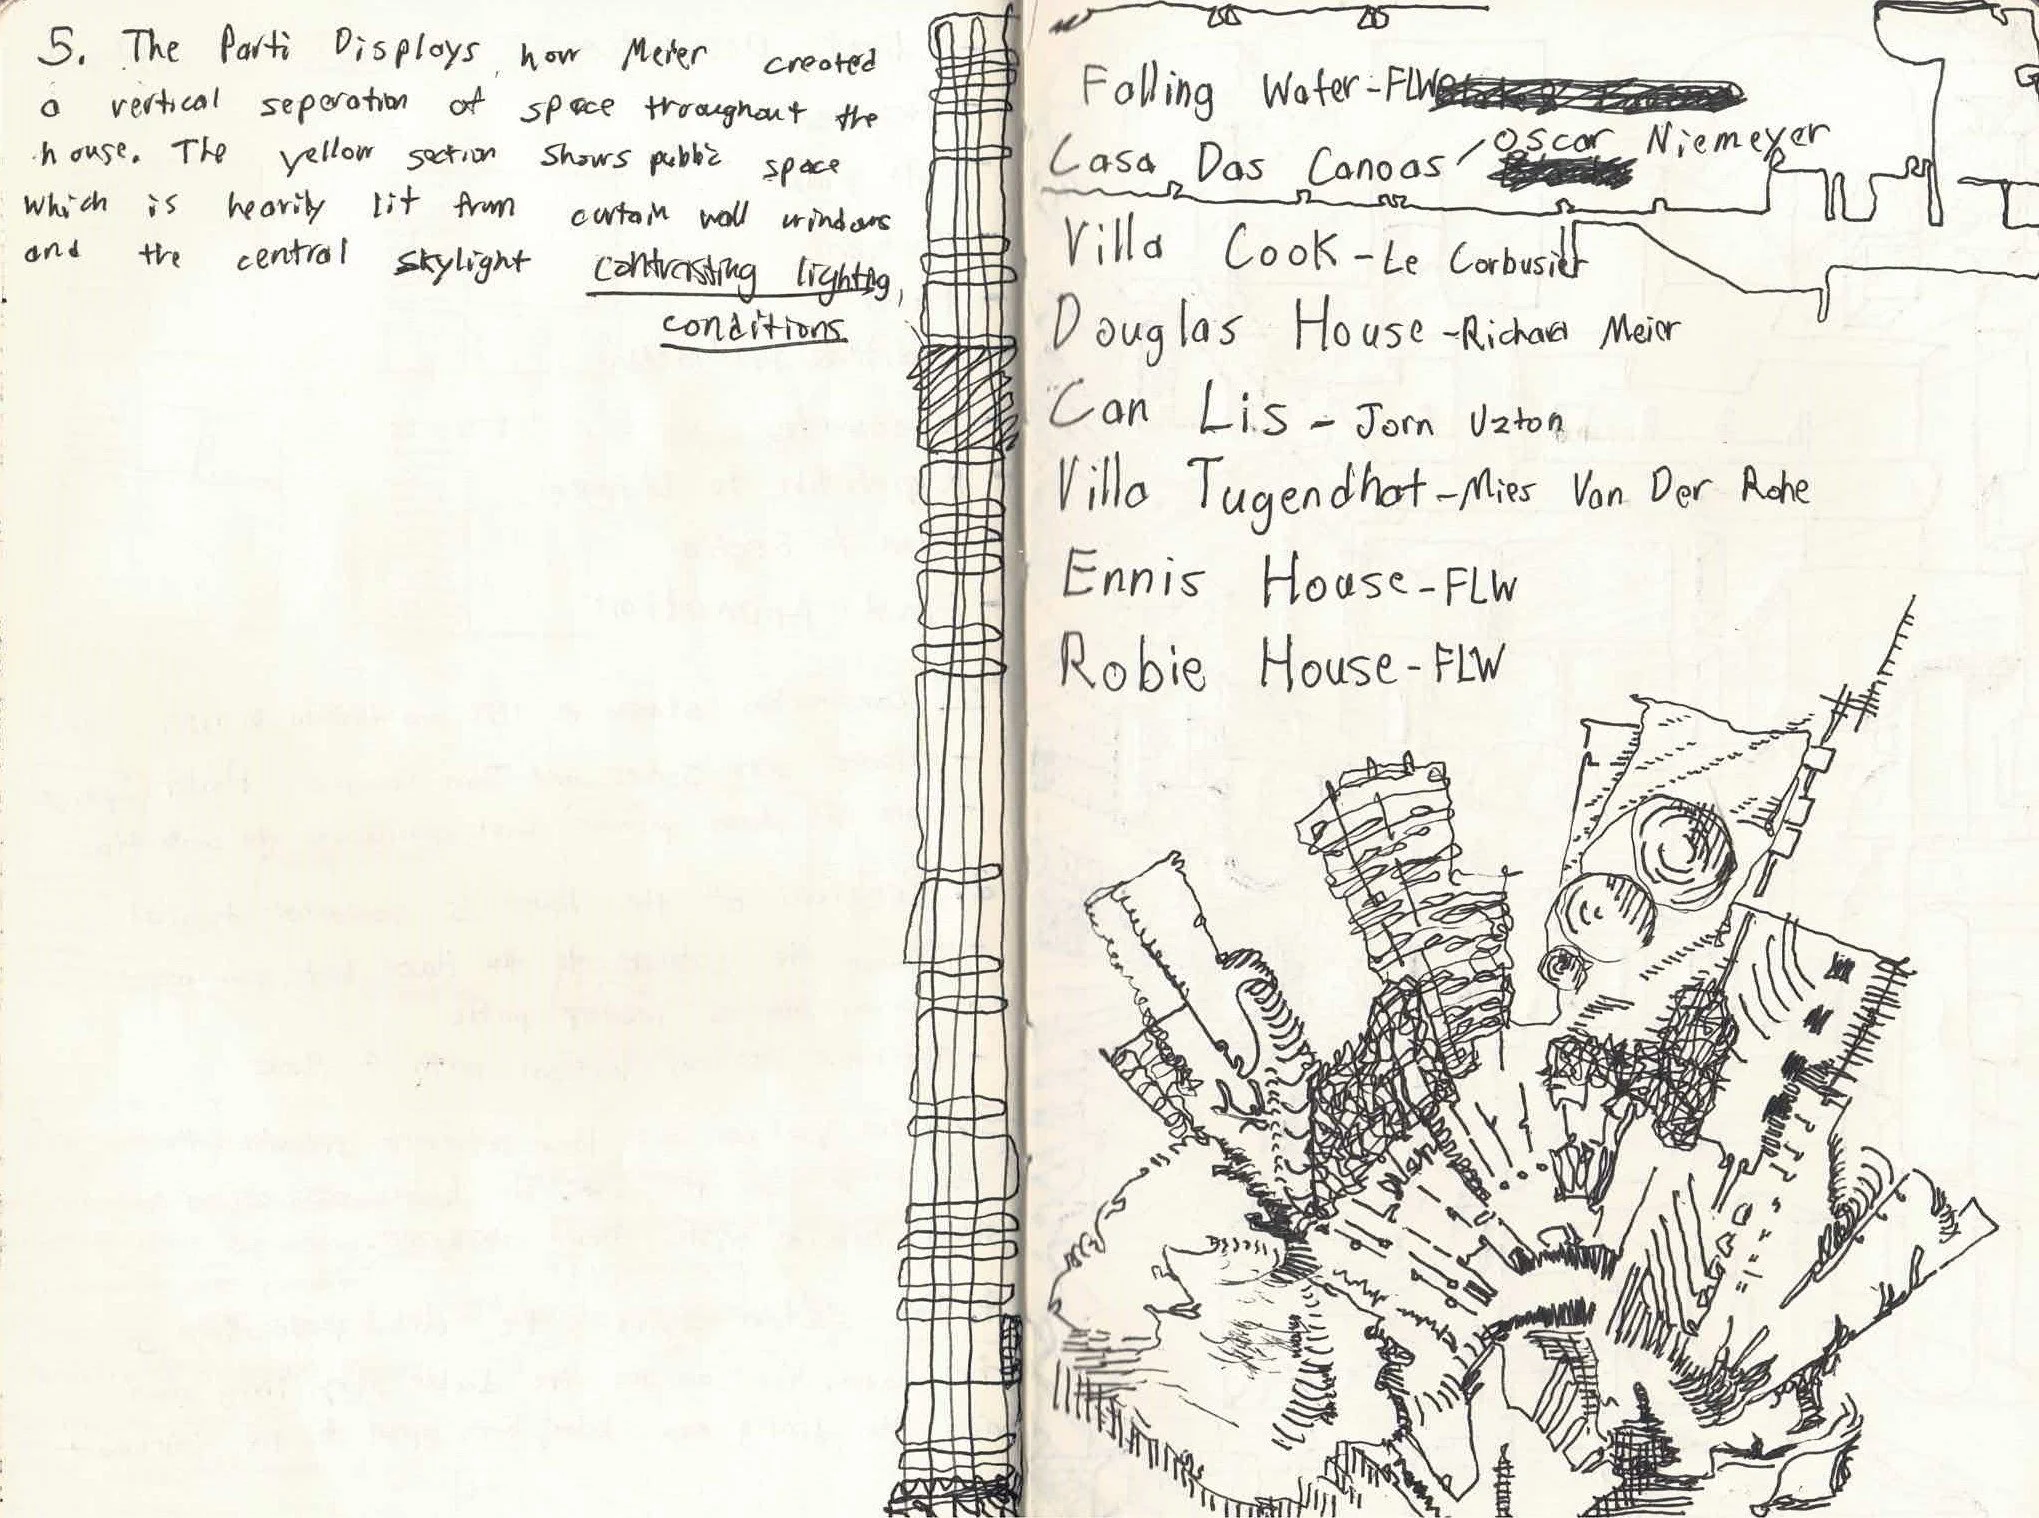 5. The Parti Displays how Meier created
a vertical seperation of space throughout the
house. The yellow section shows public space
which is heavily lit from curtain wall windows
and the central skylight contrasting lighting
conditions
Falling Water-FLW
Casa Das Canoas / Oscar Niemeyer
Villa Cook - Le Corbusier
Douglas House - Richard Meier
Can Lis - Jorn Uzton
Villa Tugendhat - Mies Van Der Rohe
Ennis House - FLW
Robie House - FLW